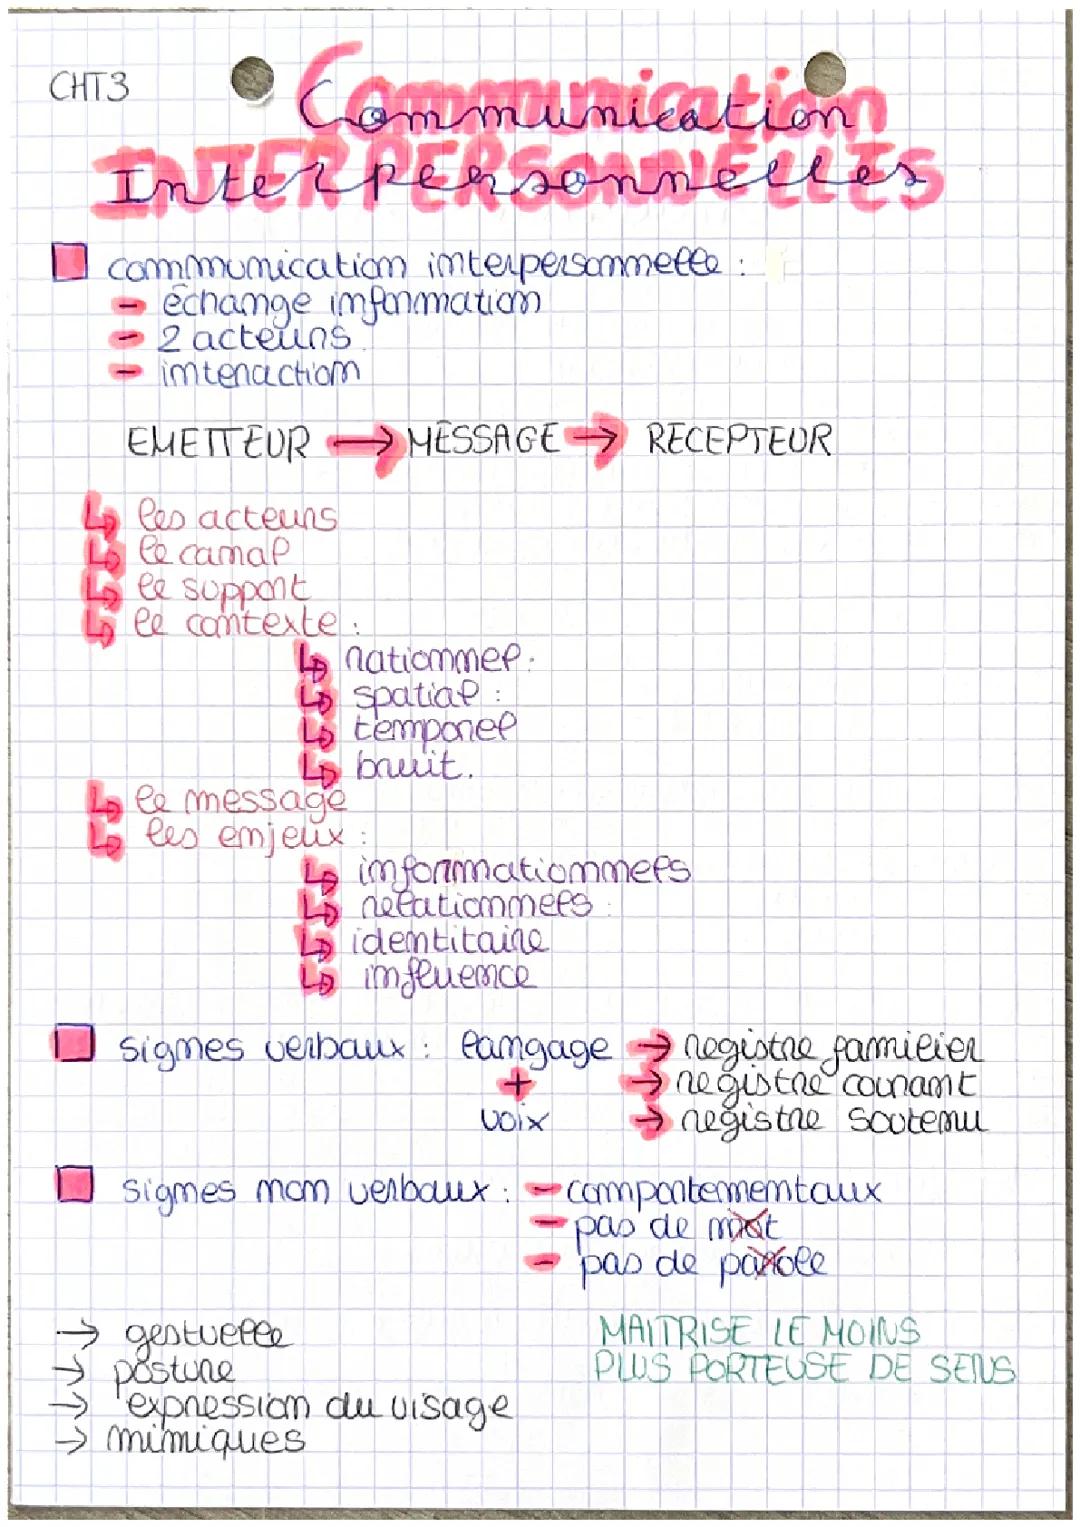 CHT3
Communication
Interpersonnelles
communication interpersonnelle :
- échange information
- 2 acteurs
- interaction
EMETTEUR → MESSAGE → RECEPTEUR
↳ les acteurs
↳ le canal
↳ le support
↳ le contexte :
↳ rationnel :
↳ spatial :
↳ temporel
↳ bruit.
↳ le message
↳ les enjeux :
↳ informationnels
↳ relationnels :
↳ identitaire
↳ influence
signes verbaux : langage → registre familier
+ → registre courant
voix → registre soutenu
signes non verbaux : - comportementaux
- pas de mot
- pas de parole
→ gestuelle MAITRISE LE MOINS
→ posture PLUS PORTEUSE DE SENS
→ expression du visage
→ mimiques